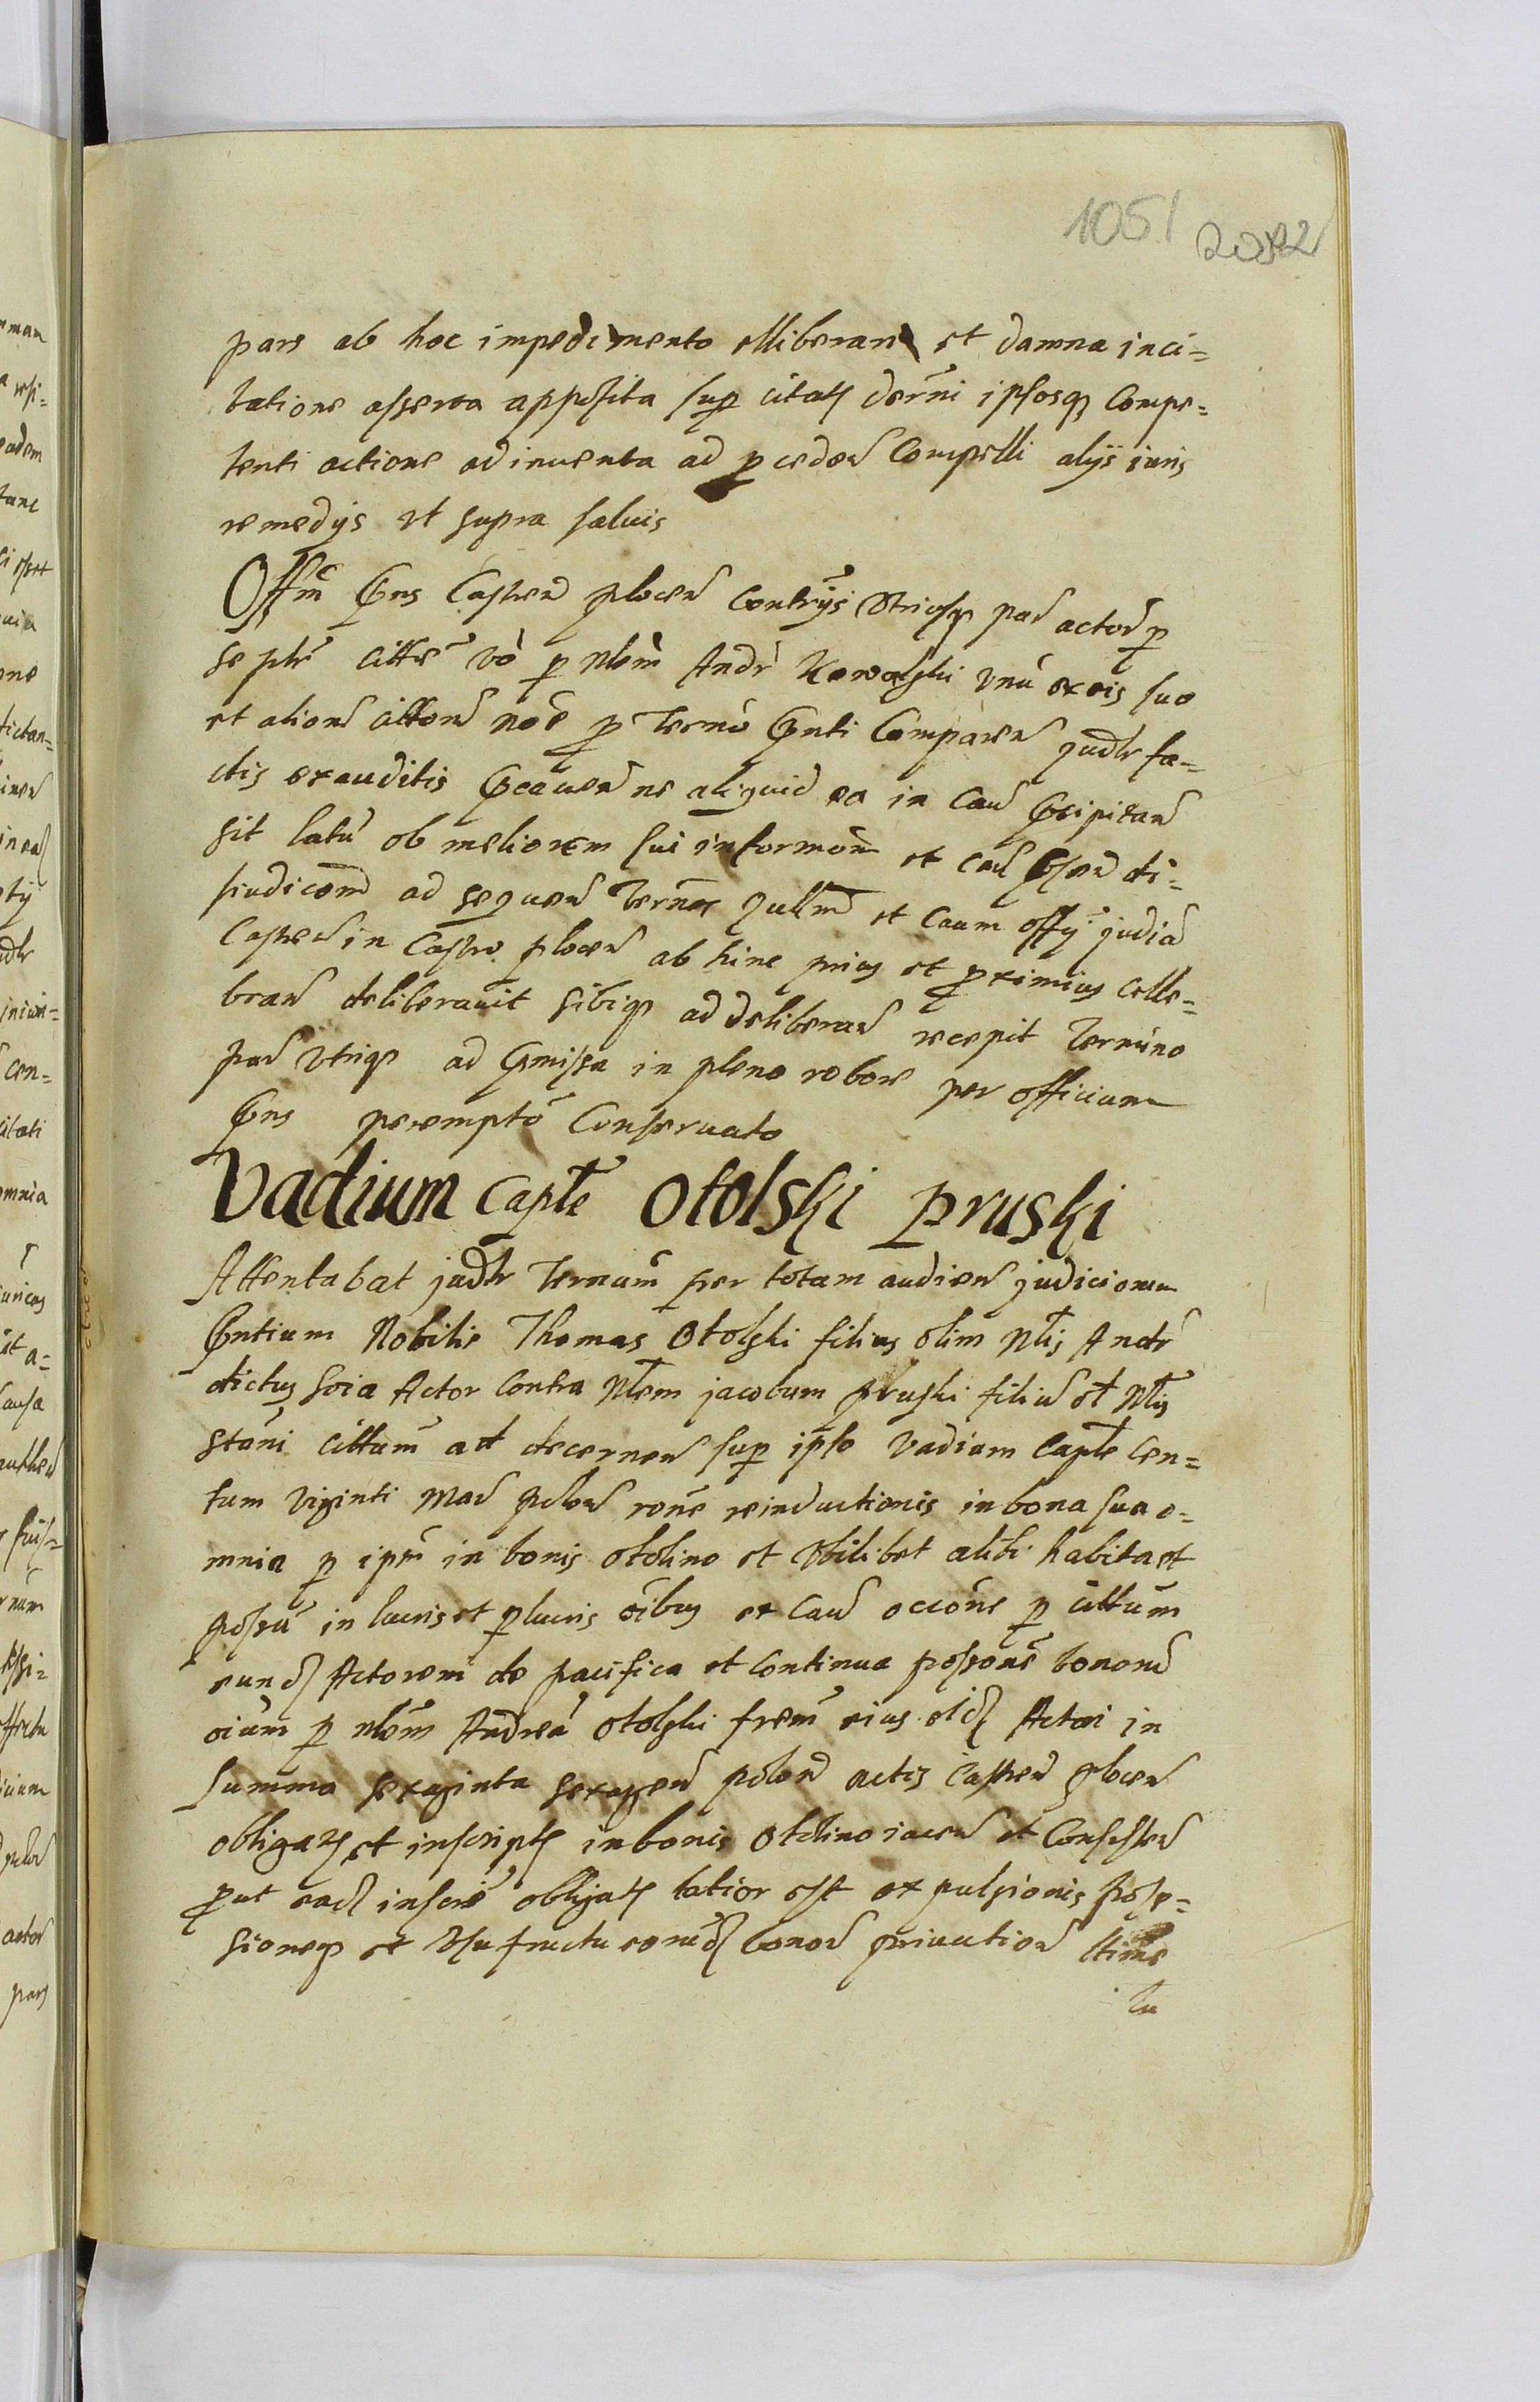 1051 2022
pars ab hoc impedimento elliberari et damna inci=
tatione asserta apposita sup citatꝭ dermi ipsosqȝ Compe=
tenti actione adinventa ad ꝓceden Compelli alijs iuris
remedijs vt supra salvis
Offm Pns Castren plocen Contrijs Vtriusqȝ par actor ꝑ
se pltr citte vo ꝑ Nlem Andr Kowalski vnu ex eis suo
et alior cittor noe ꝓ Terno Pnti Comparen judtr fa=
ctis exauditis Pcaven ne aliquid ea in Cau Pcipitan
sit latu ob meliorem sui informom et cau di=
iudicom ad sequen Ternor qullm et Caum offij judia
Castren in Castro plocen ab hinc prius et ꝓximius Celle=
bran deliberavit sibiqȝ ad deliberan recepit Termino
par vtriqȝ ad Pmissa in pleno robore per officium
Pns perempto Conservato
Vadium Capte Otolski Pruski
Attentabat judtr Ternum per totam audien judiciorum
Pntium Nobilis Thomas Otolski filius olim Nlis Andr
dictus soia Actor Contra Nlem jacobum Pruski filiu ol Nlis
Stani cittum ad decernen sup ipso Vadium Capte Cen=
tum viginti Mar polon rone reinductionis in bona sua o=
mnia ꝑ ipm in bonis Otolino et Vbilibet alibi habita et
possu in lucris et ꝑlucris oibus ex Cau occone ꝑ cittum
eundꝭ Actorem de pacifica et Continua possone bonor
oium ꝑ Nlem Andrea Otolski frem eius eidꝭ Actori in
Summa sexaginta sexagen polon actis Castren plocen
obligatꝭ et inscriptꝭ in bonis Otolino iacen et Consisten
ꝓut eadꝭ inscrie obligatꝭ latior est expulsionis posse=
sioneqȝ et Vsufructu eorudꝭ bonor privation ltime
tu